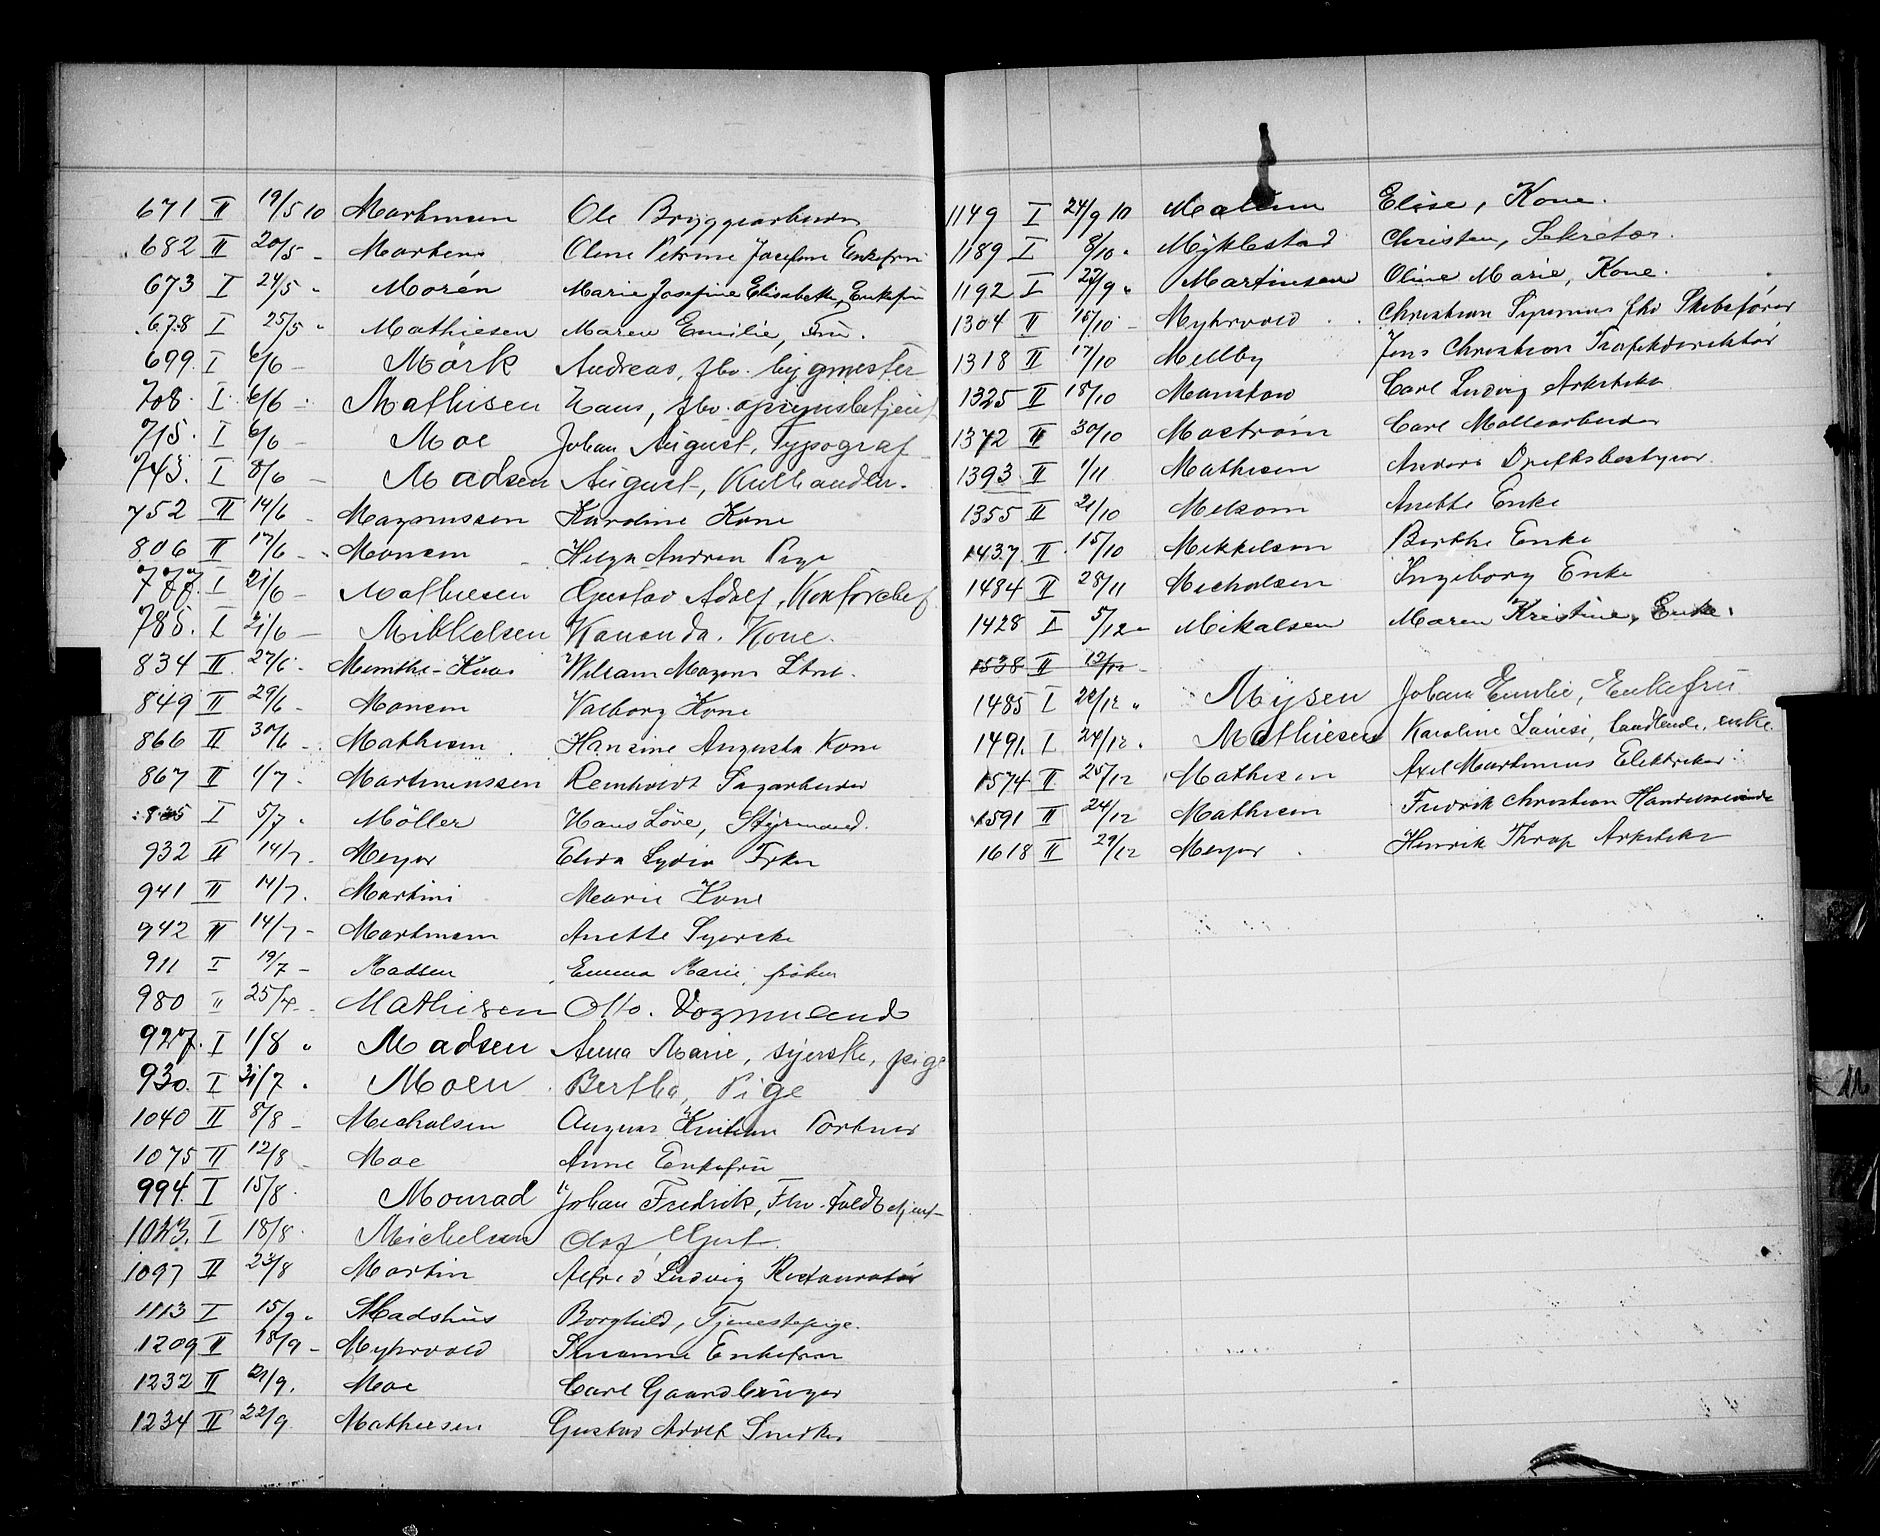 671 II 19/5 10 Martinsen Ole Bryggearbeider
682 II 20/5 - Martens Oline Petrine Josefine Enkefru
673 I 24/5 " Morén Marie Josefine Elisabeth, Enkefru
678 I 25/5 " Mathiesen Maren Emilie, Fru.
699. I 6/6 - Mörk Andreas, fhv. bygmester
708. I 6/6 - Mathisen Hans, fhv. opsynsbetjent
715. I 6/6 - Moe Johan August, Typograf
743. I 8/6 - Madsen August, Kulhandler.
752 II 14/6 - Magnussen Karoline Kone
806 II 17/6 - Monsen Helga Andrea Pige
777. I 21/6 - Mathiesen Gustav Adolf, Kontorchef
785. I 21/6 - Mikkelsen Kananda. Kone.
834 II 27/6 - Munthe-Kaas Wilram Magnus
849 II 29/6 - Monsen Valborg Kone
866 II 30/6 - Mathisen Hansine Augusta Kone
867 II 1/7 - Martinussen Reinholdt Sagarbeider
I 5/7 . Möller Hans Löve, Styrmand.
932 II 14/7. Meyer Elida Lydia Frkn
941 II 14/7. Martini Marie Kone
942 II 14/7 - Martinsen Anette Syerske
911 I 19/7 - Madsen Emma Marie, frøken
980 II 25/7 - Mathisen Otto. Vognmand
927. I 1/8 " Madsen Anna Marie, syerske, pige
930. I 31/7 . Moen Bertha, Pige
1040 II 8/8 - Michalsen August Kristian Portner
1075 II 12/8 - Moe Anne Enkefru
994. I 15/8. Monrad Johan Fredrik, Fhv. Toldbetjent
1023. I 18/8. Michelsen Olaf
1097 II 23/8 Martin Alfred Ludvig Restauratör
1113 I 15/9 " Madshus Borghild, Tjenestepige.
1209 II 18/9 - Myhrvold Susanne Enkefru
1232 II 21/9. Moe Carl Gaardbruger
1234 II 22/9. Mathiesen Gustav Adolf Snedker
1149 I 24/9 10 Elise, Kone.
1189 I 8/10 " Myklestad Christen, Sekretær.
1192 I 22/9 " Martinsen Oline Marie, Kone.
1304 II 15/10 - Myhrvold Christian Syvenius fhv Skibsfører
1318 II 17/10 Mellby Jens Christian Trafikdirektör
1325 II 18/10 Manstow Carl Ludvig Arkitekt
1372 II 30/10 Moström Carl Møllearbeider
1393 II 1/11 Mathisen Anders Driftsbestyrer.
1355 II 21/10 Melsom Anette Enke
1437 II 15/10 Mikkelsen Berthe Enke
1484 II 28/11 Michalsen Ingeborg Enke
1428 I 5/12 - Mikalsen Maren Kristine, Enke.
1538 II 12/12 -
1485 I 22/12 " Mysen Johan Emilie, Enkefru
1491. I 24/12 . Mathiesen Karoline Lovise, enke.
1574 II 25/12 Mathisen Axel Martinius Elektriker
1591 II 24/12 Mathisen Fredrik Christian Handelsreisende
1618 II 29/12 Meyer Henrik Thrap Arkitekt